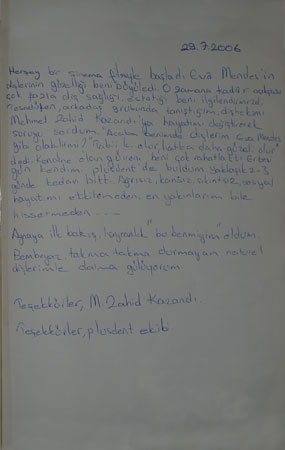 29.7.2006
Herşey bir sinema filmiyle başladı. Eva Mendes'in
dişlerinin güzelliği beni büyüledi. O zamana kadar açıkçası
çok fazla diş sağlığı, estetiği beni ilgilendirmezdi.
Tesadüfen, arkadaş grubumda tanıştığım dişhekimi
Mehmet Zahid Kazandı'ya hayatımı değiştirecek
soruyu sordum. "Acaba benimde dişlerim Eva Mendes
gibi olabilirmi?" Tabii ki olur hatta daha güzel olur"
dedi. Kendine olan güveni beni çok rahatlattı. Ertesi
gün kendimi plusdent de buldum yaklaşık 2-3
günde tedavi bitti. Ağrısız, kansız, sosyal
hayatımı etkilemeden, en yakınlarım bile
hissetmeden....
Aynaya ilk bakış, hayranlık "bu benmiyim" oldum.
Bembeyaz, takma takma durmayan, naturel
dişlerimle daima gülüyorum
Teşekkürler, M. Zahid Kazandı.
Teşekkürler, plusdent ekibi